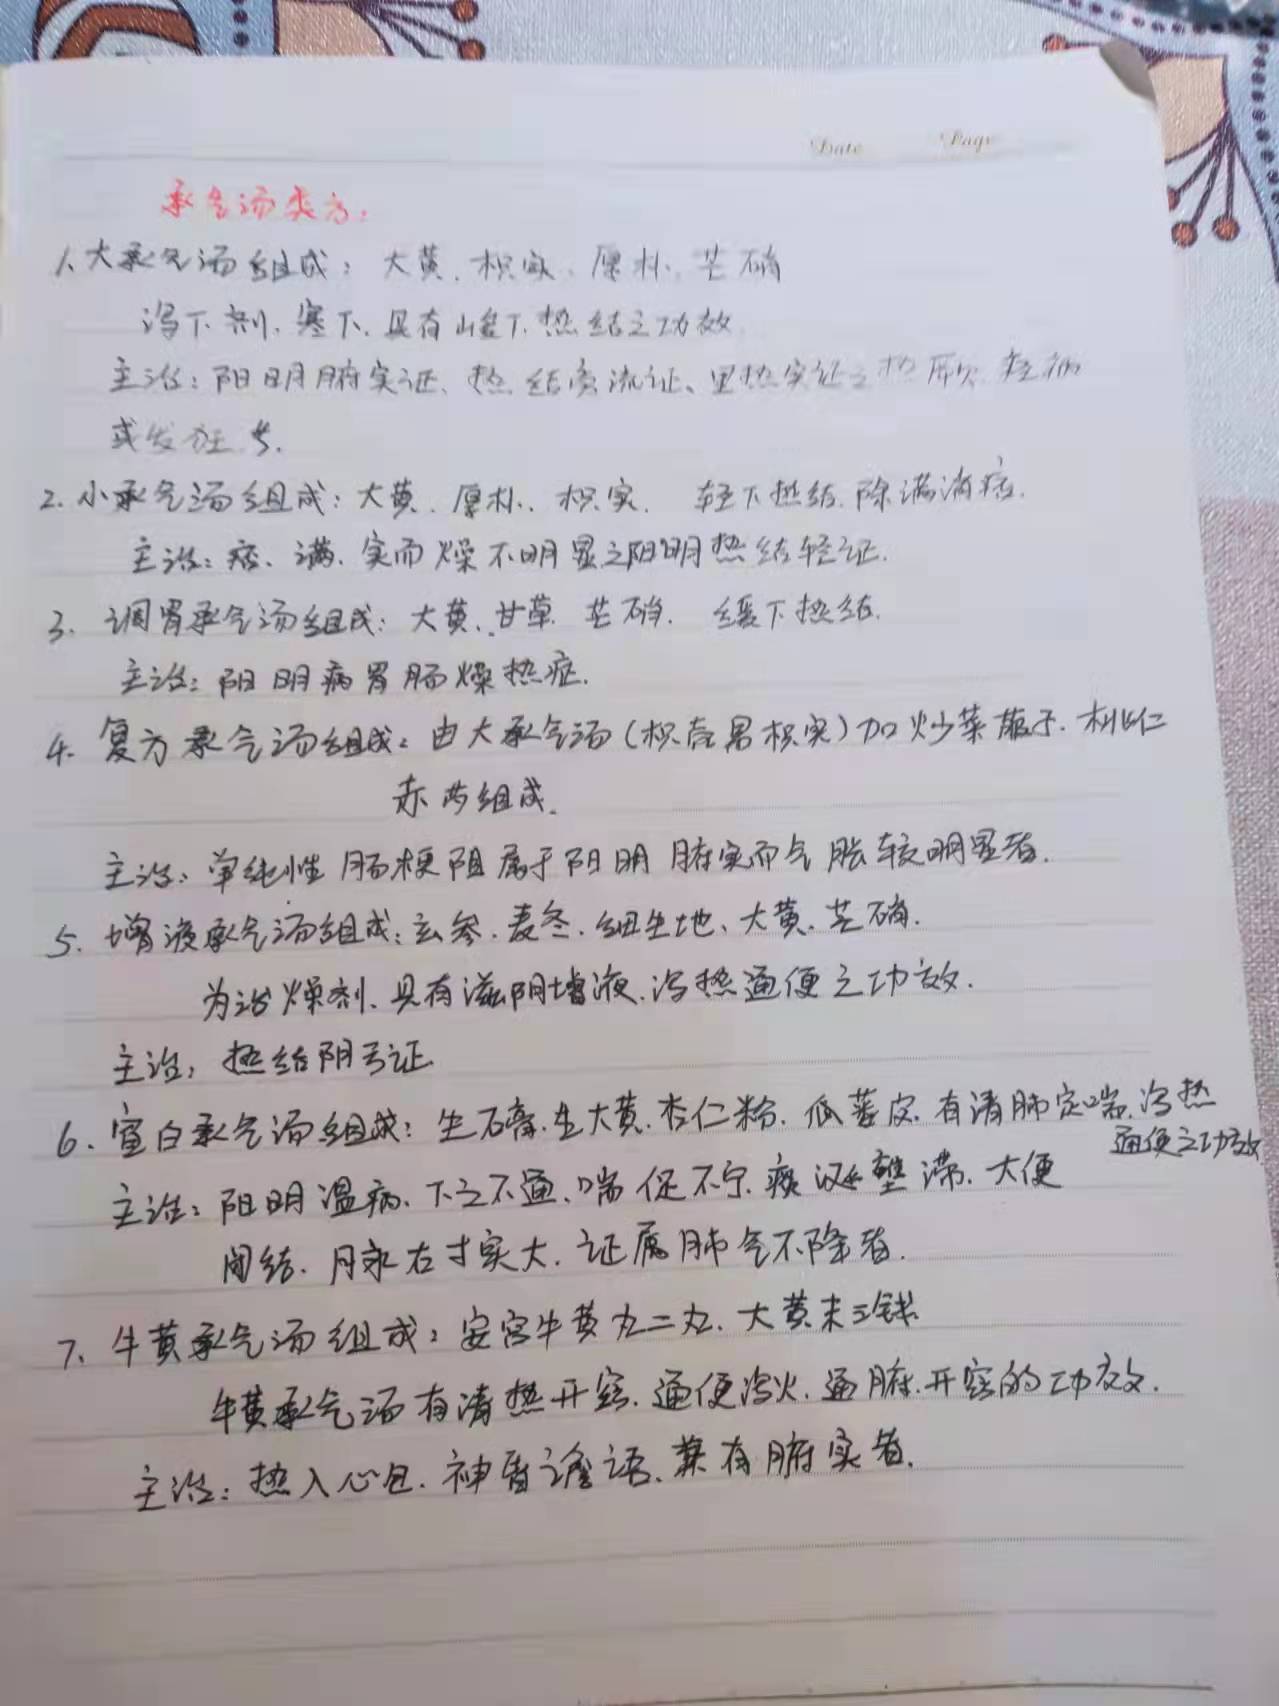 Date Page
承气汤类方:
1、大承气汤组成: 大黄、枳实、厚朴、芒硝
泻下剂、寒下、具有峻下热结之功效
主治: 阳明腑实证、热结旁流证、里热实证之热厥、痉病
或发狂等.
2. 小承气汤组成: 大黄、厚朴、枳实. 轻下热结、除满消痞.
主治: 痞、满、实而燥不明显之阳明热结轻证.
3. 调胃承气汤组成: 大黄、甘草、芒硝. 缓下热结.
主治: 阳明病胃肠燥热症.
4. 复方承气汤组成: 由大承气汤(枳壳易枳实)加炒莱菔子、桃仁
赤芍组成.
主治: 单纯性肠梗阻属于阳明腑实而气胀较明显者.
5. 增液承气汤组成: 玄参、麦冬、细生地、大黄、芒硝.
为治燥剂、具有滋阴增液、泻热通便之功效.
主治: 热结阴亏证
6. 宣白承气汤组成: 生石膏、生大黄、杏仁粉、瓜蒌皮、有清肺定喘、泻热
通便之功效
主治: 阳明温病、下之不通、喘促不宁、痰涎壅滞、大便
闭结、脉右寸实大、证属肺气不降者.
7、牛黄承气汤组成: 安宫牛黄丸二丸、大黄末三钱
牛黄承气汤有清热开窍、通便泻火、通腑、开窍的功效.
主治: 热入心包、神昏谵语、兼有腑实者.